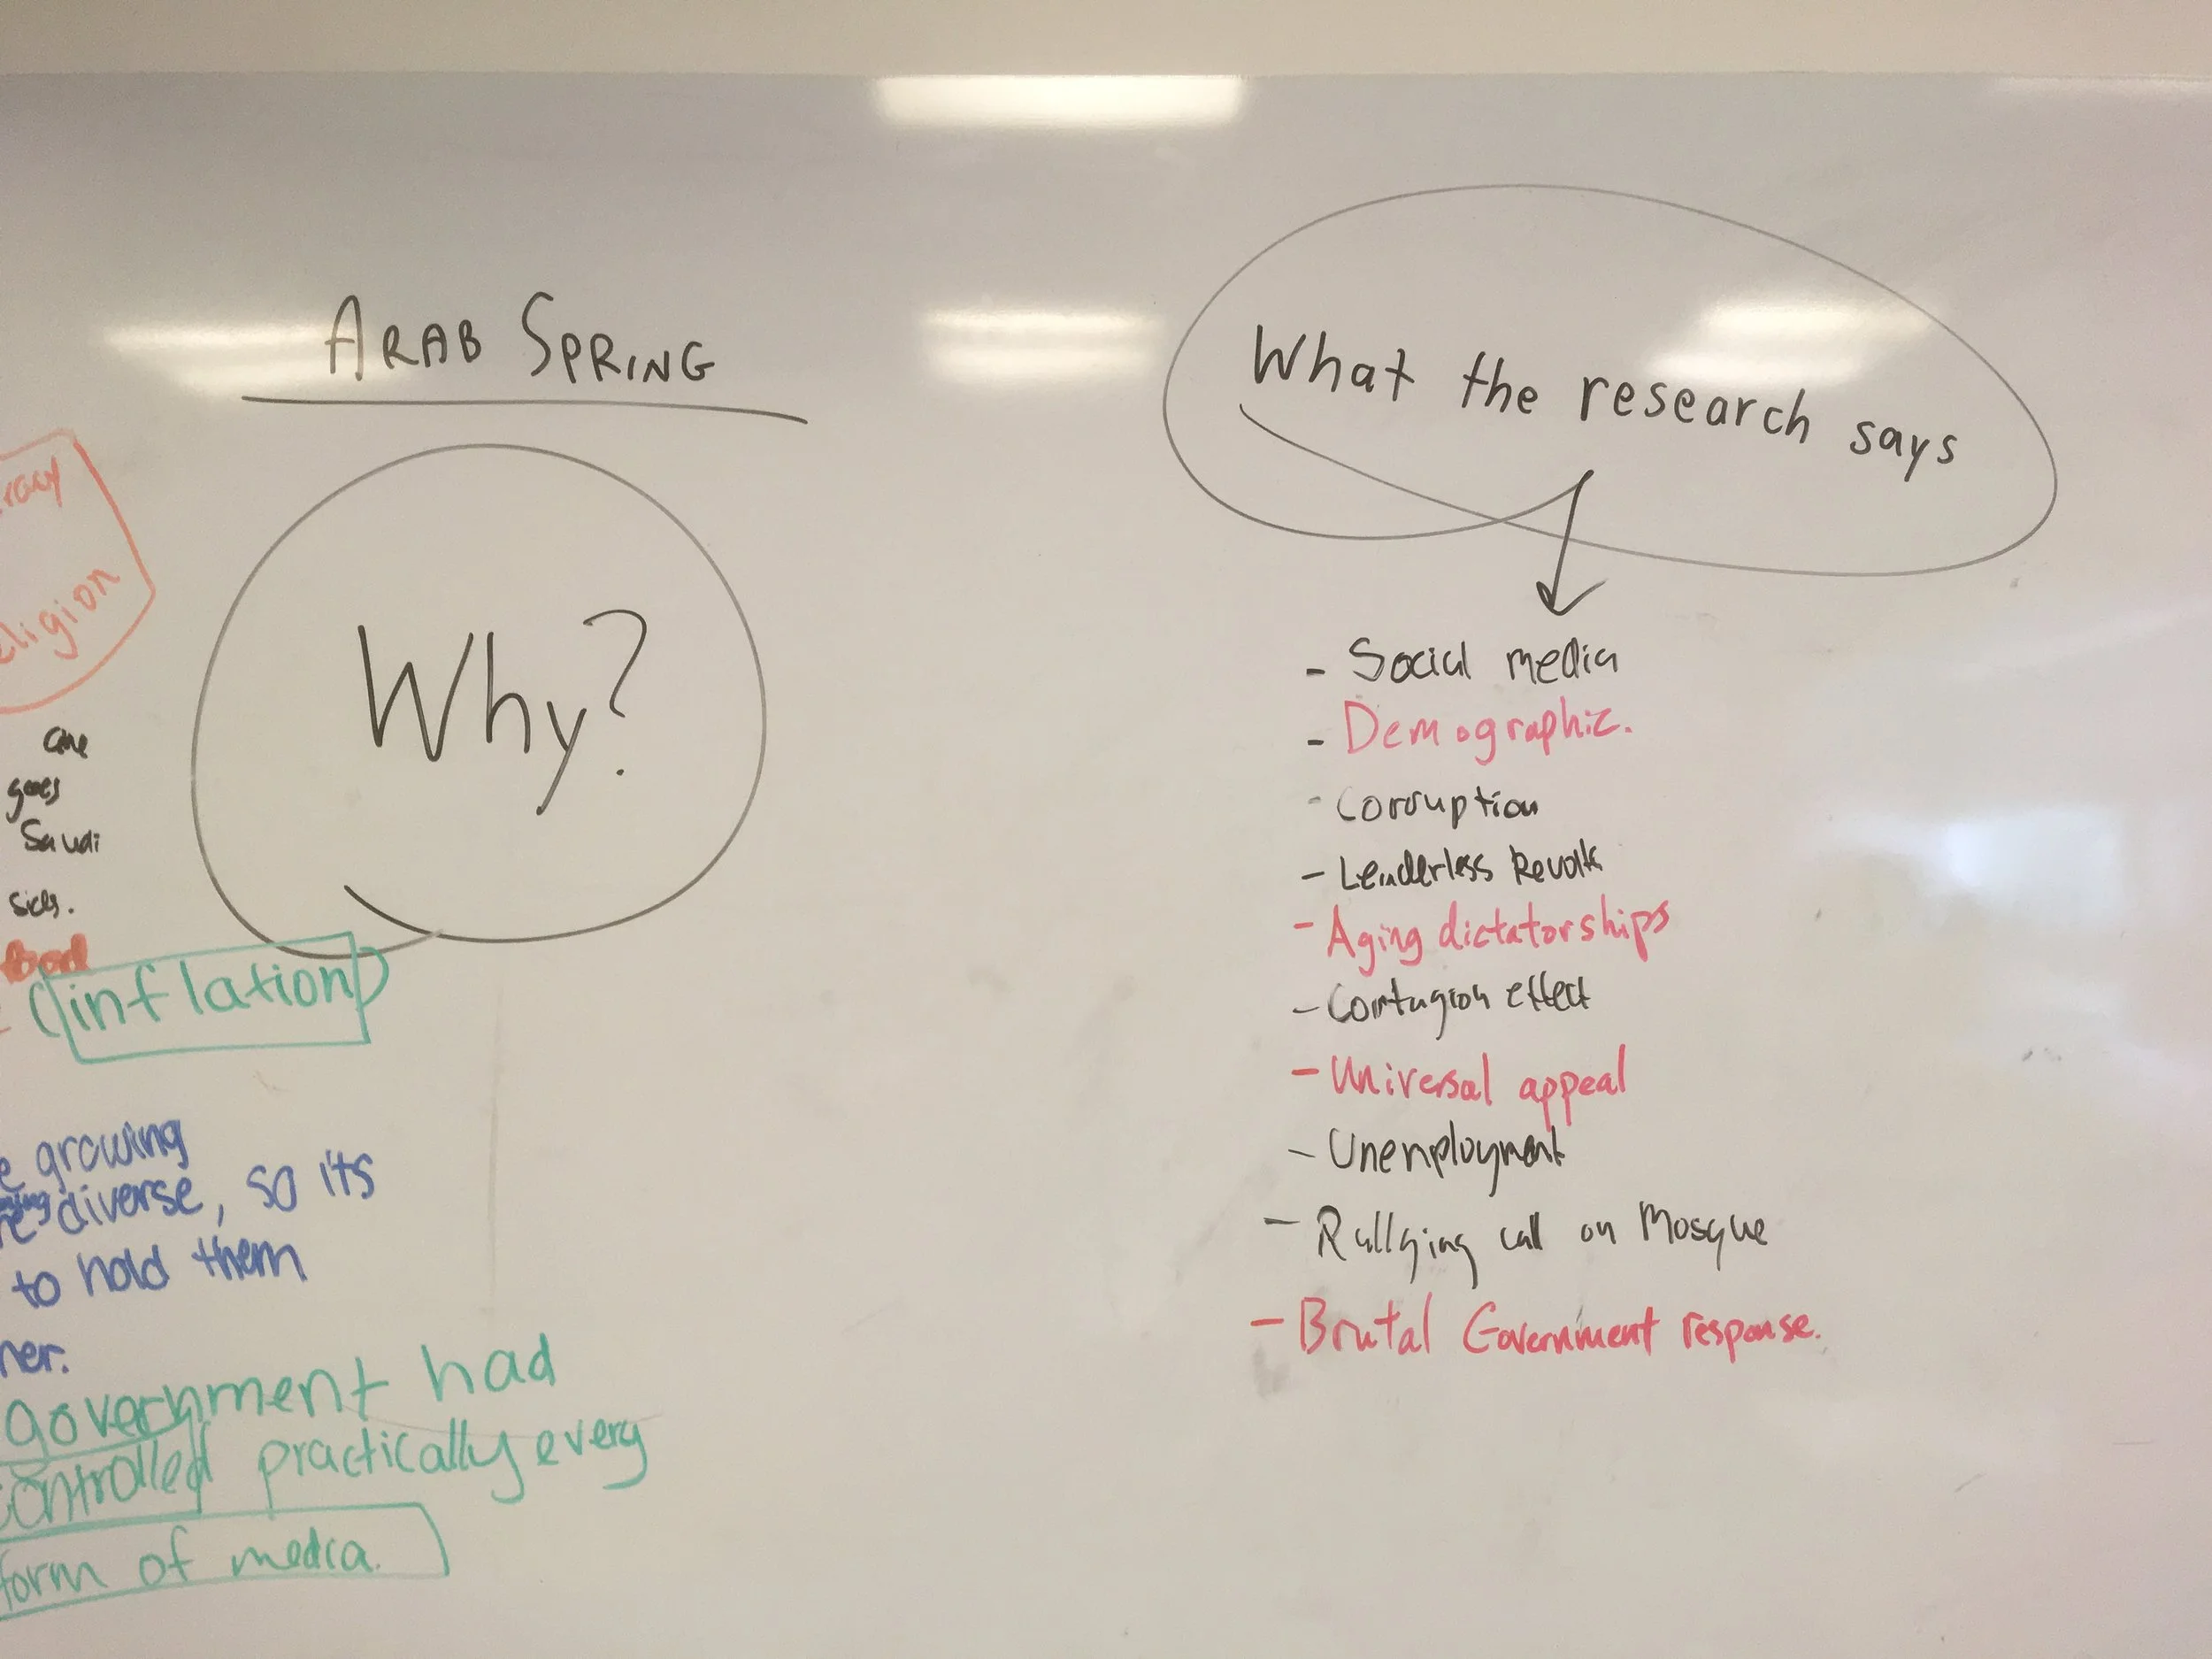 ARAB SPRING
Why?
religion
goes
Saudi
food
(inflation)
growing
diverse, so its
to hold them
government had
controlled practically every
form of media.
What the research says
- Social media
- Demographic.
- Corruption
- Leaderless Revolts
- Aging dictatorships
- Contagion effect
- Universal appeal
- Unenployment
- Rallying call on Mosque
- Brutal Government response.